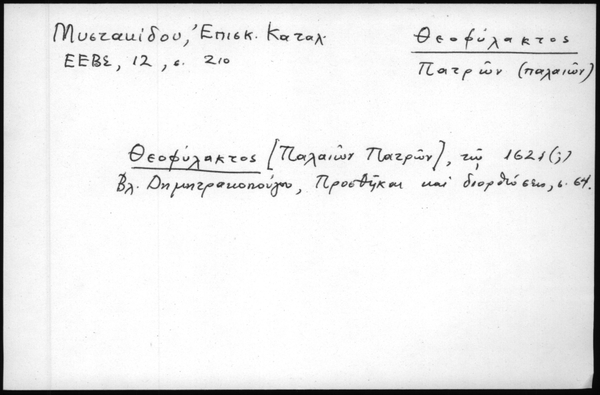 Μυστακίδου, Ἐπισκ. Καταλ.
ΕΕΒΣ, 12, σ. 210
Θεοφύλακτος
Πατρῶν (παλαιῶν)
Θεοφύλακτος [Παλαιῶν Πατρῶν], τῷ 1621(;)
Βλ. Δημητρακοπούλου, Προσθῆκαι καὶ διορθώσεις, σ. 64.